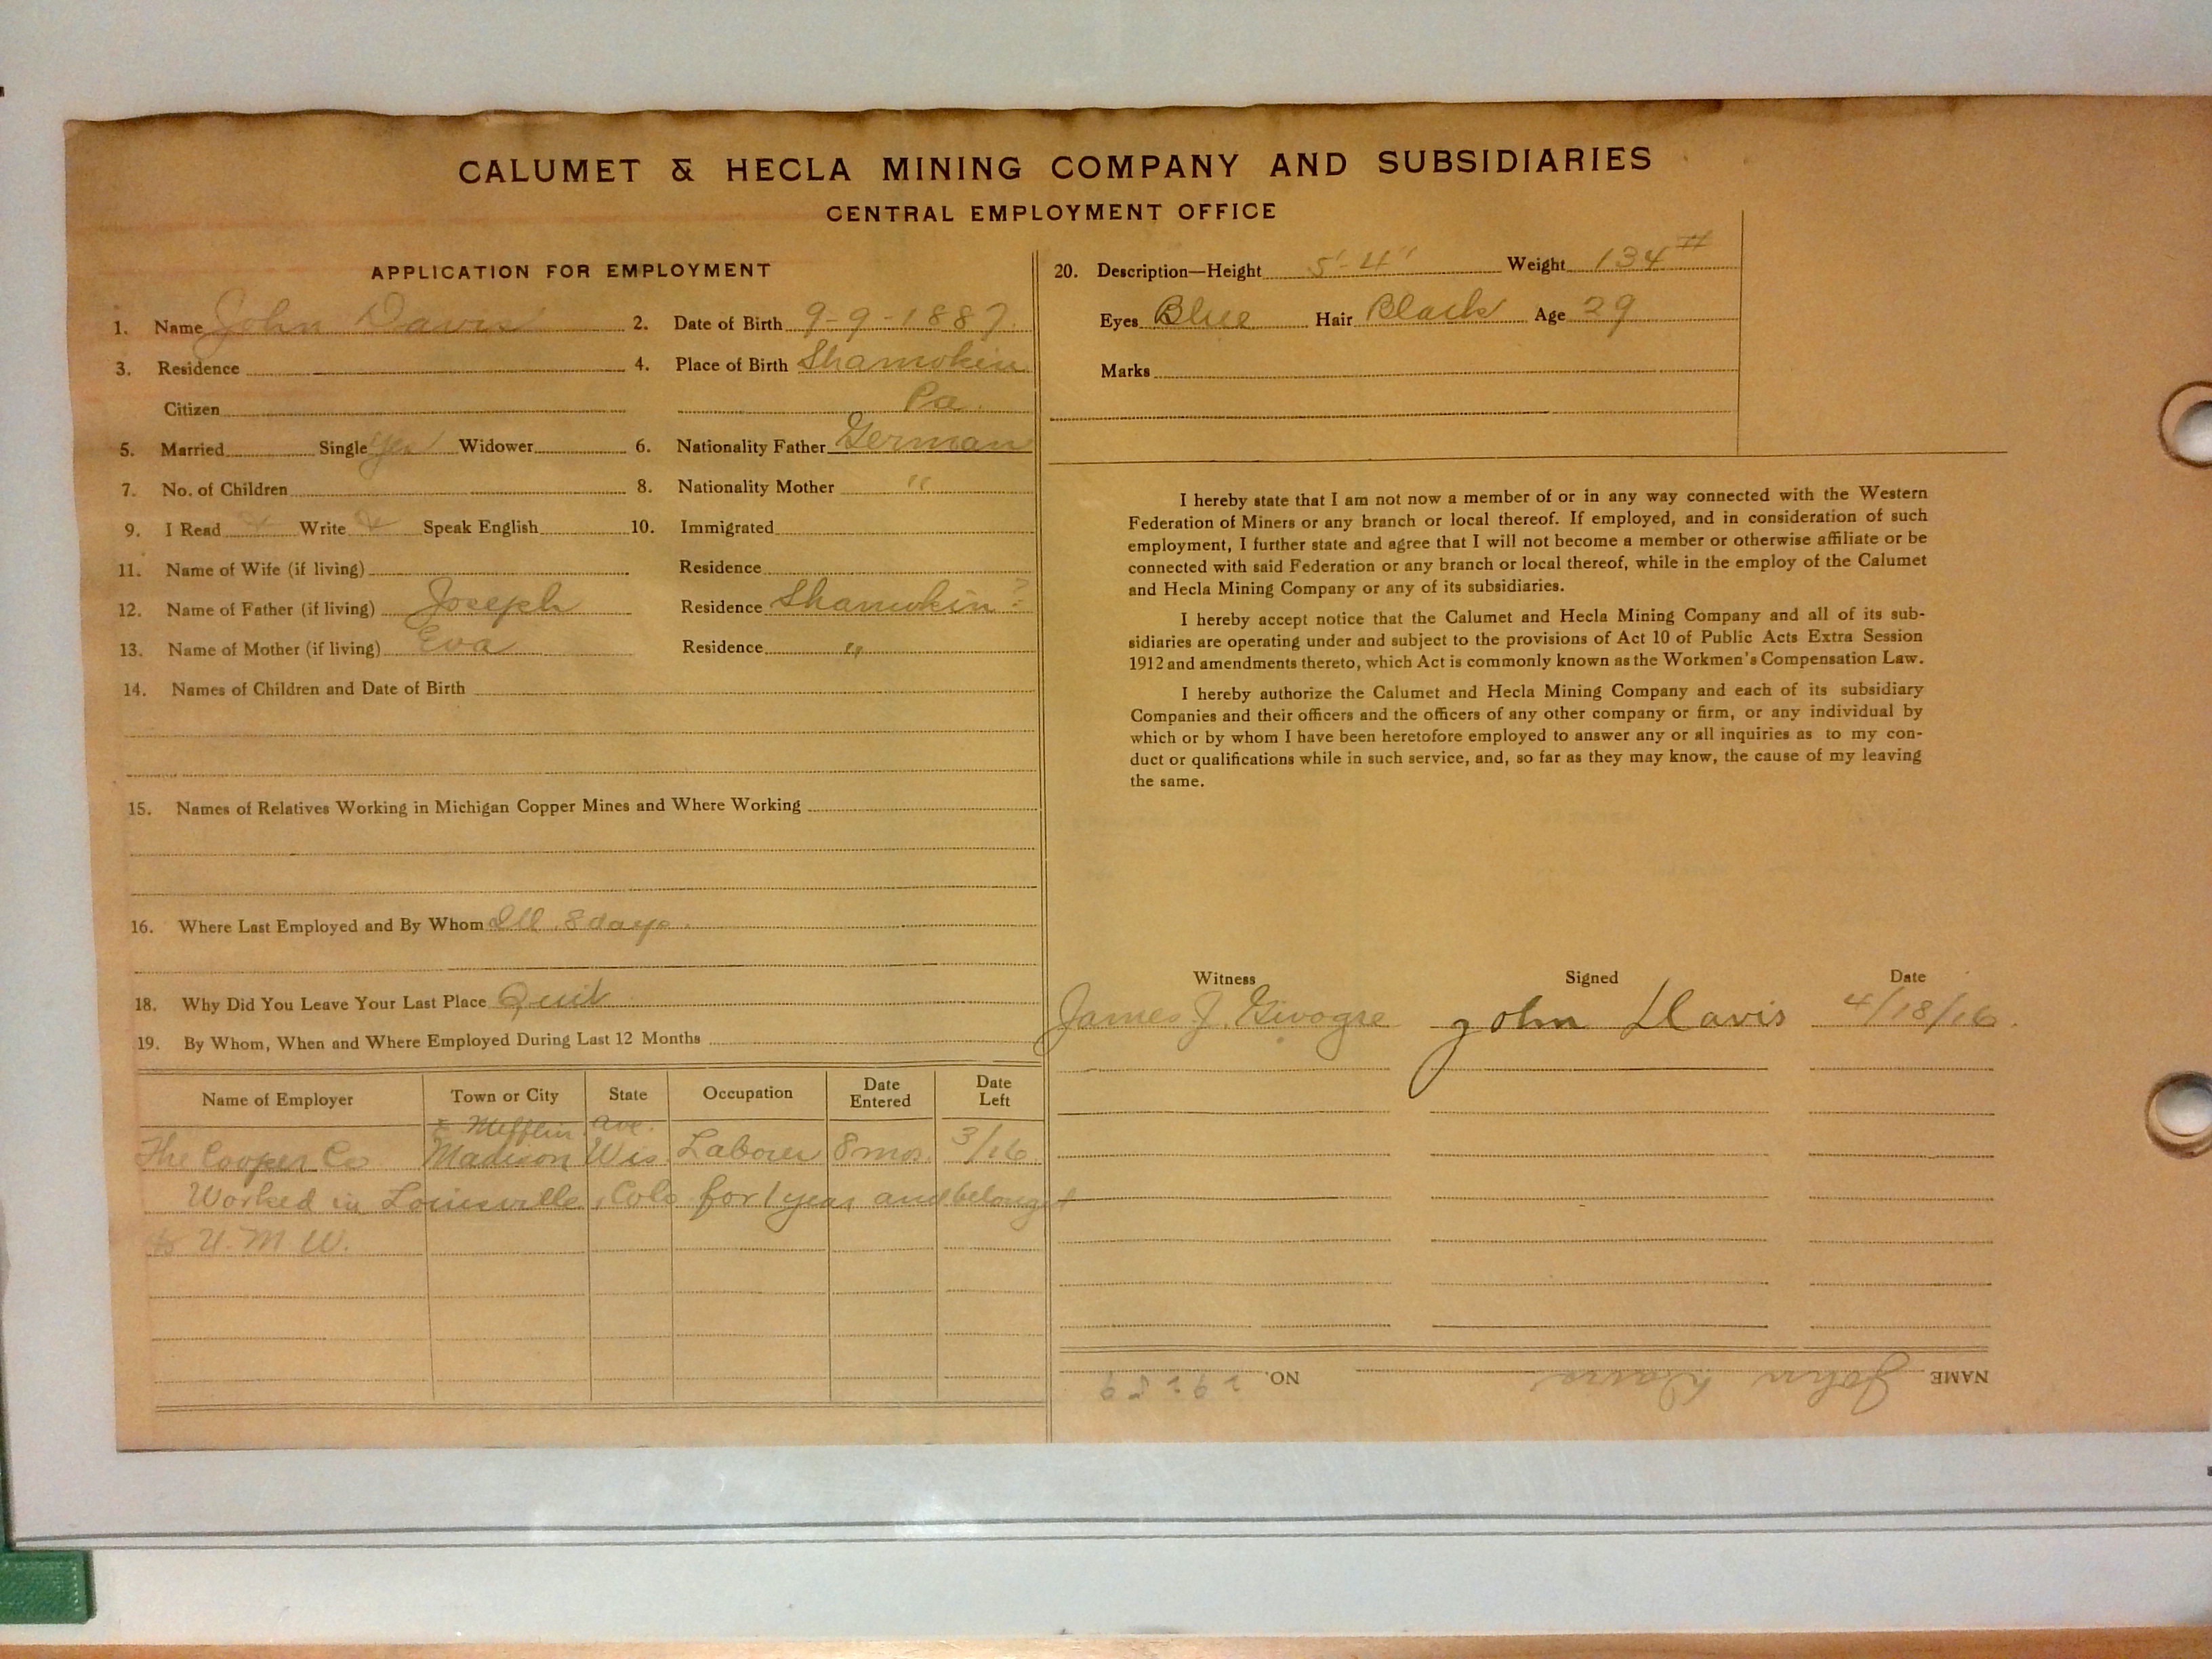 CALUMET & HECLA MINING COMPANY AND SUBSIDIARIES
CENTRAL EMPLOYMENT OFFICE
APPLICATION FOR EMPLOYMENT
1. Name John Davis 2. Date of Birth 9-9-1887
3. Residence 4. Place of Birth Shamokin
Citizen Pa.
5. Married Single yes Widower 6. Nationality Father German
7. No. of Children 8. Nationality Mother "
9. I Read Write Speak English 10. Immigrated
11. Name of Wife (if living) Residence
12. Name of Father (if living) Joseph Residence Shamokin ?
13. Name of Mother (if living) Eva Residence "
14. Names of Children and Date of Birth
15. Names of Relatives Working in Michigan Copper Mines and Where Working
16. Where Last Employed and By Whom Ill 8 days.
18. Why Did You Leave Your Last Place Quit
19. By Whom, When and Where Employed During Last 12 Months
Name of Employer Town or City State Occupation Date Entered Date Left
E Mifflin Ave.
The Cooper Co Madison Wis. Laborer 8 mos. 3/16
Worked in Louisville, Colo for 1 year and belonged
to U.M.W.
20. Description—Height 5'-4" Weight 134#
Eyes Blue Hair Black Age 29
Marks
I hereby state that I am not now a member of or in any way connected with the Western
Federation of Miners or any branch or local thereof. If employed, and in consideration of such
employment, I further state and agree that I will not become a member or otherwise affiliate or be
connected with said Federation or any branch or local thereof, while in the employ of the Calumet
and Hecla Mining Company or any of its subsidiaries.
I hereby accept notice that the Calumet and Hecla Mining Company and all of its sub-
sidiaries are operating under and subject to the provisions of Act 10 of Public Acts Extra Session
1912 and amendments thereto, which Act is commonly known as the Workmen's Compensation Law.
I hereby authorize the Calumet and Hecla Mining Company and each of its subsidiary
Companies and their officers and the officers of any other company or firm, or any individual by
which or by whom I have been heretofore employed to answer any or all inquiries as to my con-
duct or qualifications while in such service, and, so far as they may know, the cause of my leaving
the same.
Witness Signed Date
James J. John Davis 4/18/16.
NAME John Davis NO.